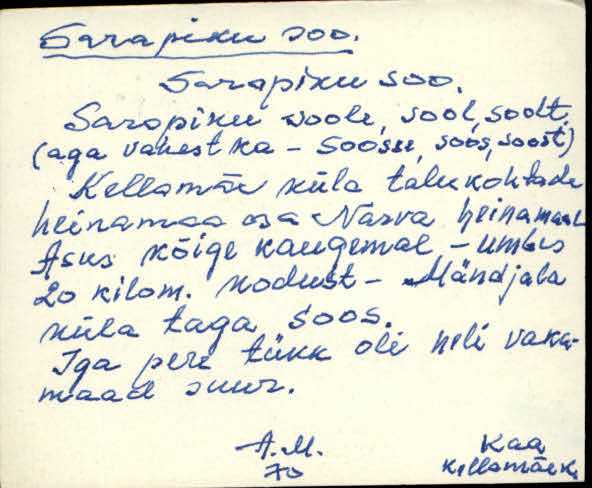 Sarapiku soo.
Sarapiku soo.
Sarapiku soole, sool, soolt.
(aga vahest ka - Soosse, soos, soost)
Kellamäe küla talukohtade
heinamaa osa Nasva heinamaal
Asus kõige kaugemal - umbes
20 kilom. kodust - Mändjala
küla taga soos.
Iga pere tükk oli neli vaka-
maad suur.
A.M. Kaa
70 Kellamäe k.